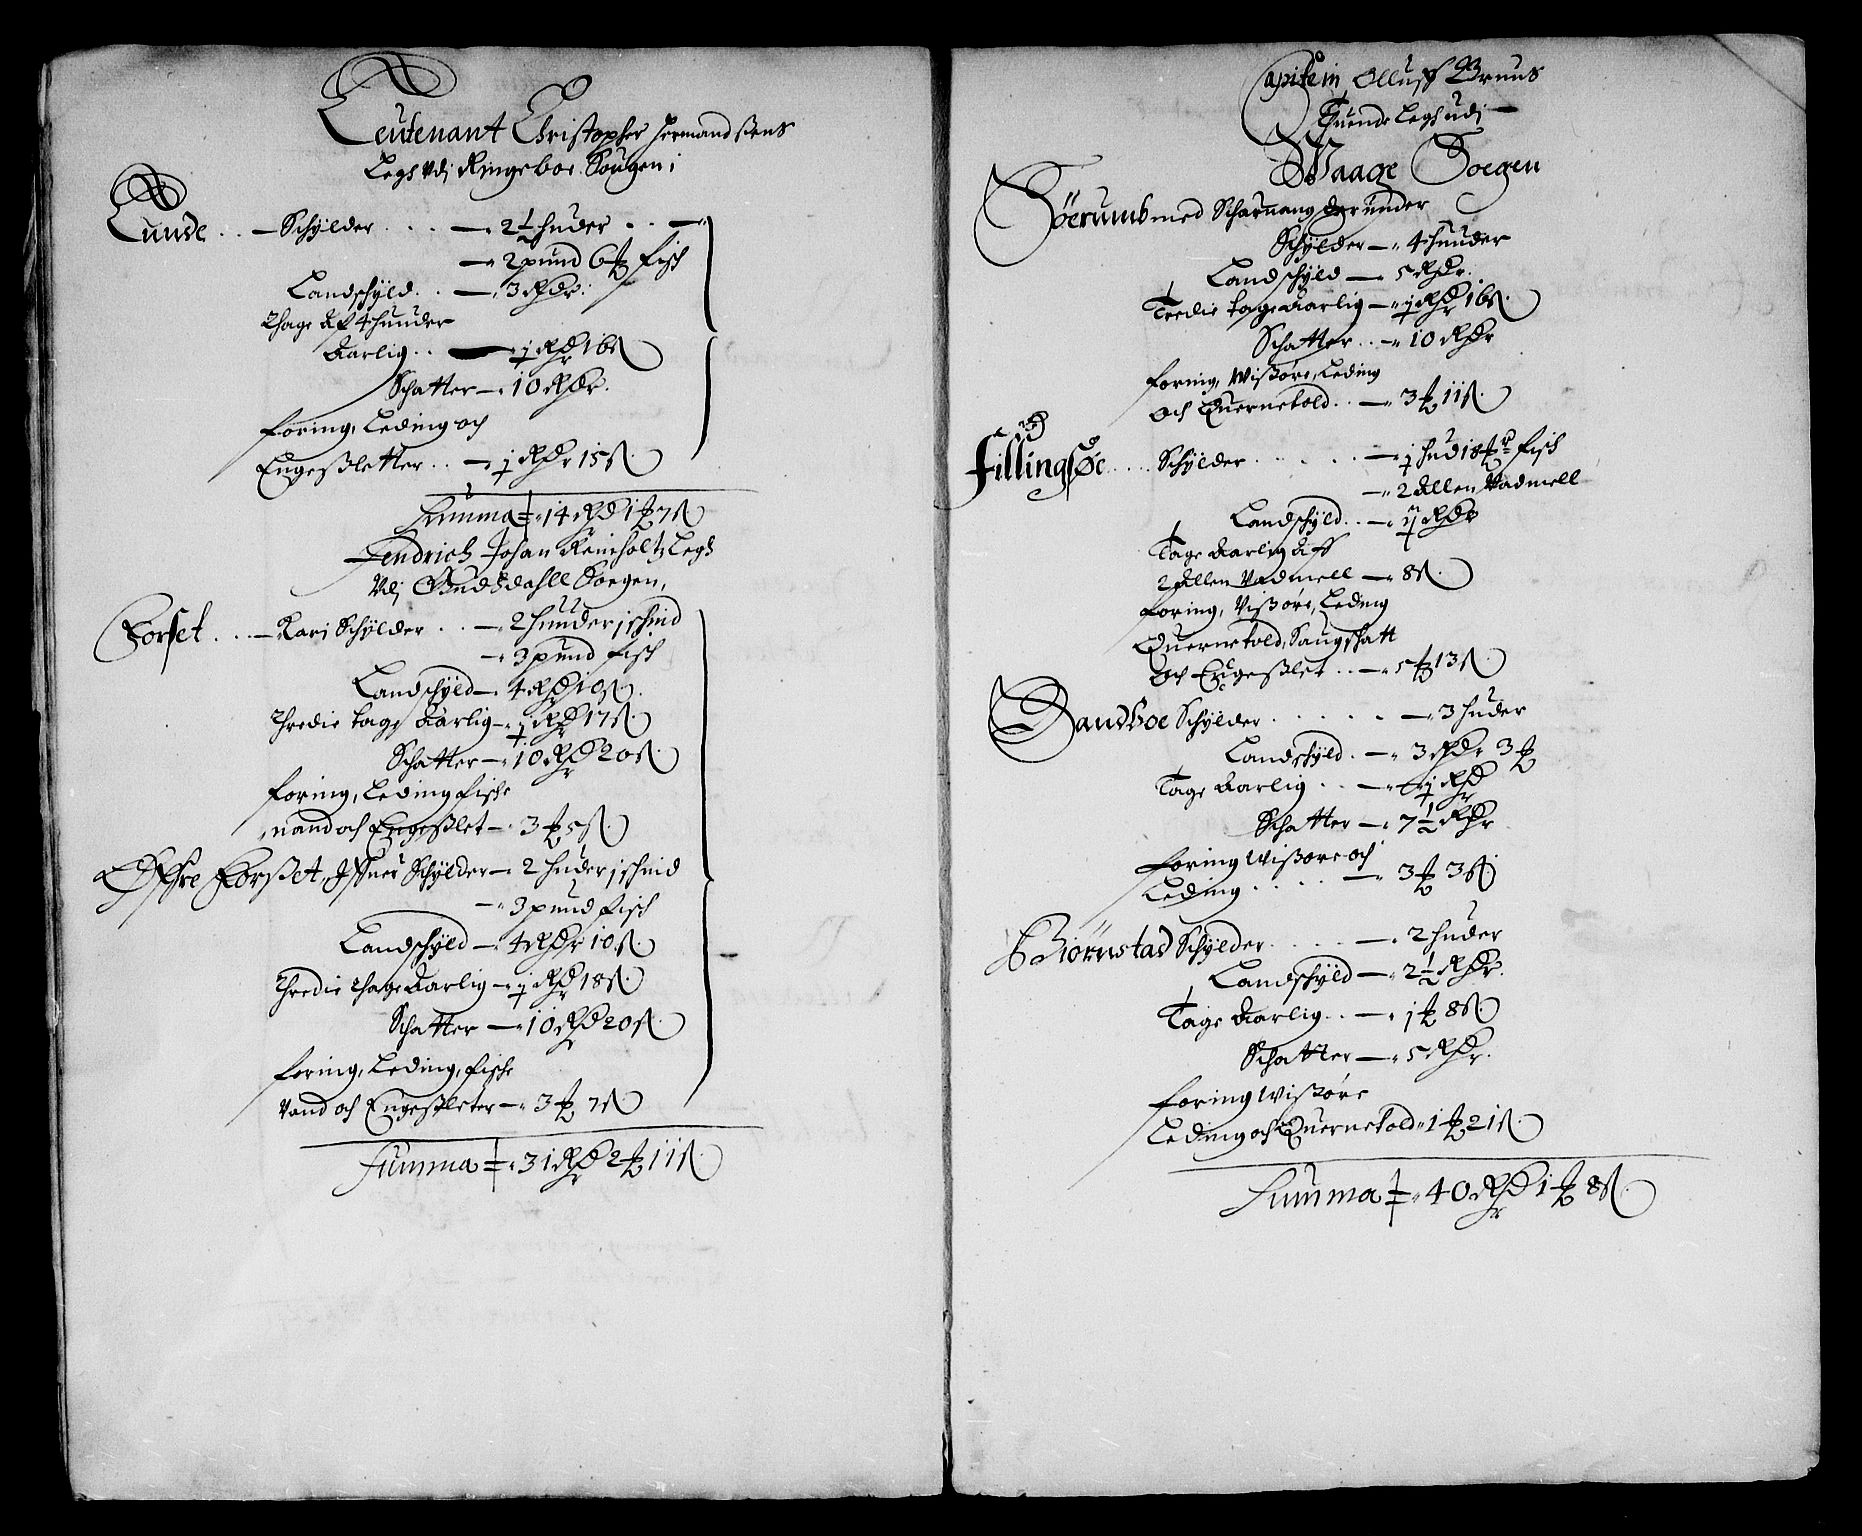 Leutenant Christopher Hermandßens
Legs Vdj Ringeboe Sougen;
Lunde . . — Schÿlder . . . . — 2½ huder . . —
— 2 pund 6 ℔ fisch
Landschÿld . . — 3 Rdr.
Thage Af 4 huuder
Aarlig . . — j Rdr 16 ß
Schatter — 10 Rdr.
foring, Leding och
Engeßletter . . — j Rdr 15 ß
Summa = 14 Rdr 1 ℔ 7 ß
Fendrich Johan Reinholtz Legs
Vdj Gudsdahll Soegen,
Forset . . . — Kari Schÿlder . . — 2 huuder j schind
— 3 pund fisch
Landschÿld — 4 Rdr 10 ß.
Thredie tage Aarlig — j Rdr 17 ß.
Schatter — 10 Rdr 20 ß
foring, Leding fische
uand och Engeßlet — 3 ℔ 5 ß.
Øffre Forßet, Iffuer Schÿlder — 2 huder j schind
— 3 pund fisch
Landschÿld — 4 Rdr 10 ß.
Thredie Thage Aarlig — j Rdr 18 ß
Schatter — 10 Rdr 20 ß.
foring, Leding, fische
Vand och Engeßleter — 3 ℔ 7 ß
Summa = 31 Rdr 2 ℔ 11 ß
Capitein Olluff Bruus
Tuende Legs udj —
Waage Soegen
Söerumb med Scharuang der under
Schÿlder — 4 huuder
Landschÿld — 5 Rdr.
Tredie tage Aarlig — j Rdr 16 ß.
Schatter . . — 10 Rdr
foring, Wißöre, Leding
och Quernetold . . — 3 ℔ 11 ß.
Fillingsøe . . . . Schÿlder . . . . . — j hud 18 ℔ fisch
— 2 Allen Vadmell
Landschÿld . . — ij Rdr
Tage Aarlig Aff
2 Allen Vadmell — 8 ß.
foring, Vißöre, Leding
Quernetold, Saugschatt
och Engeßlet . . — 5 ℔ 13 ß.
Sandboe Schÿlder . . . . . . — 3 huder
Landschÿld . — 3 Rdr 3 ℔
Tage Aarlig . . — j Rdr
Schatter — 7½ Rdr
foring Wißöre och
Leding . . . . — 3 ℔ 3 ß
Biörnstad Schÿlder . . . . . — 2 huder
Landschÿld — 2½ Rdr.
Tage Aarlig . . — j ℔ 8 ß.
Schatter — 5 Rdr.
foring Wißöre
Leding och Quernetold 1 ℔ 21 ß.
Summa = 40 Rdr 1 ℔ 8 ß.